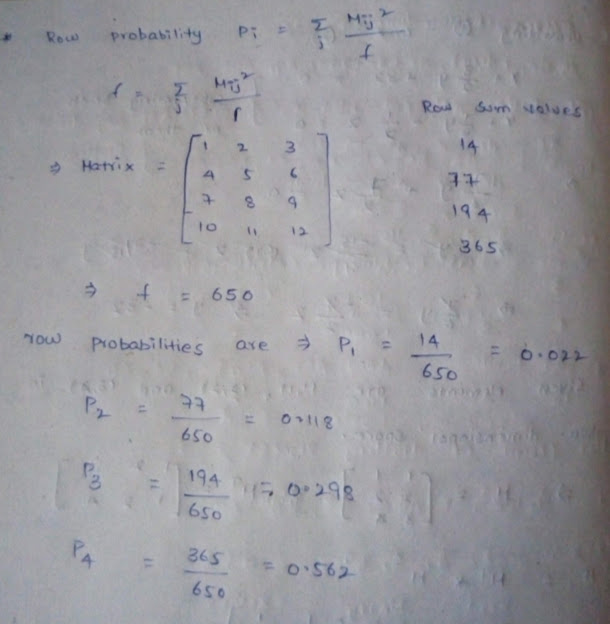 * Row probability Pi = Σ j Mij² / f
f = Σ j Mij² / f
Row sum values
⇒ Matrix = [ 1 2 3
14
4 5 6
77
7 8 9
194
10 11 12 ]
365
⇒ f = 650
row probabilities are ⇒ P₁ = 14 / 650 = 0.022
P₂ = 77 / 650 = 0.118
P₃ = 194 / 650 = 0.298
P₄ = 365 / 650 = 0.562